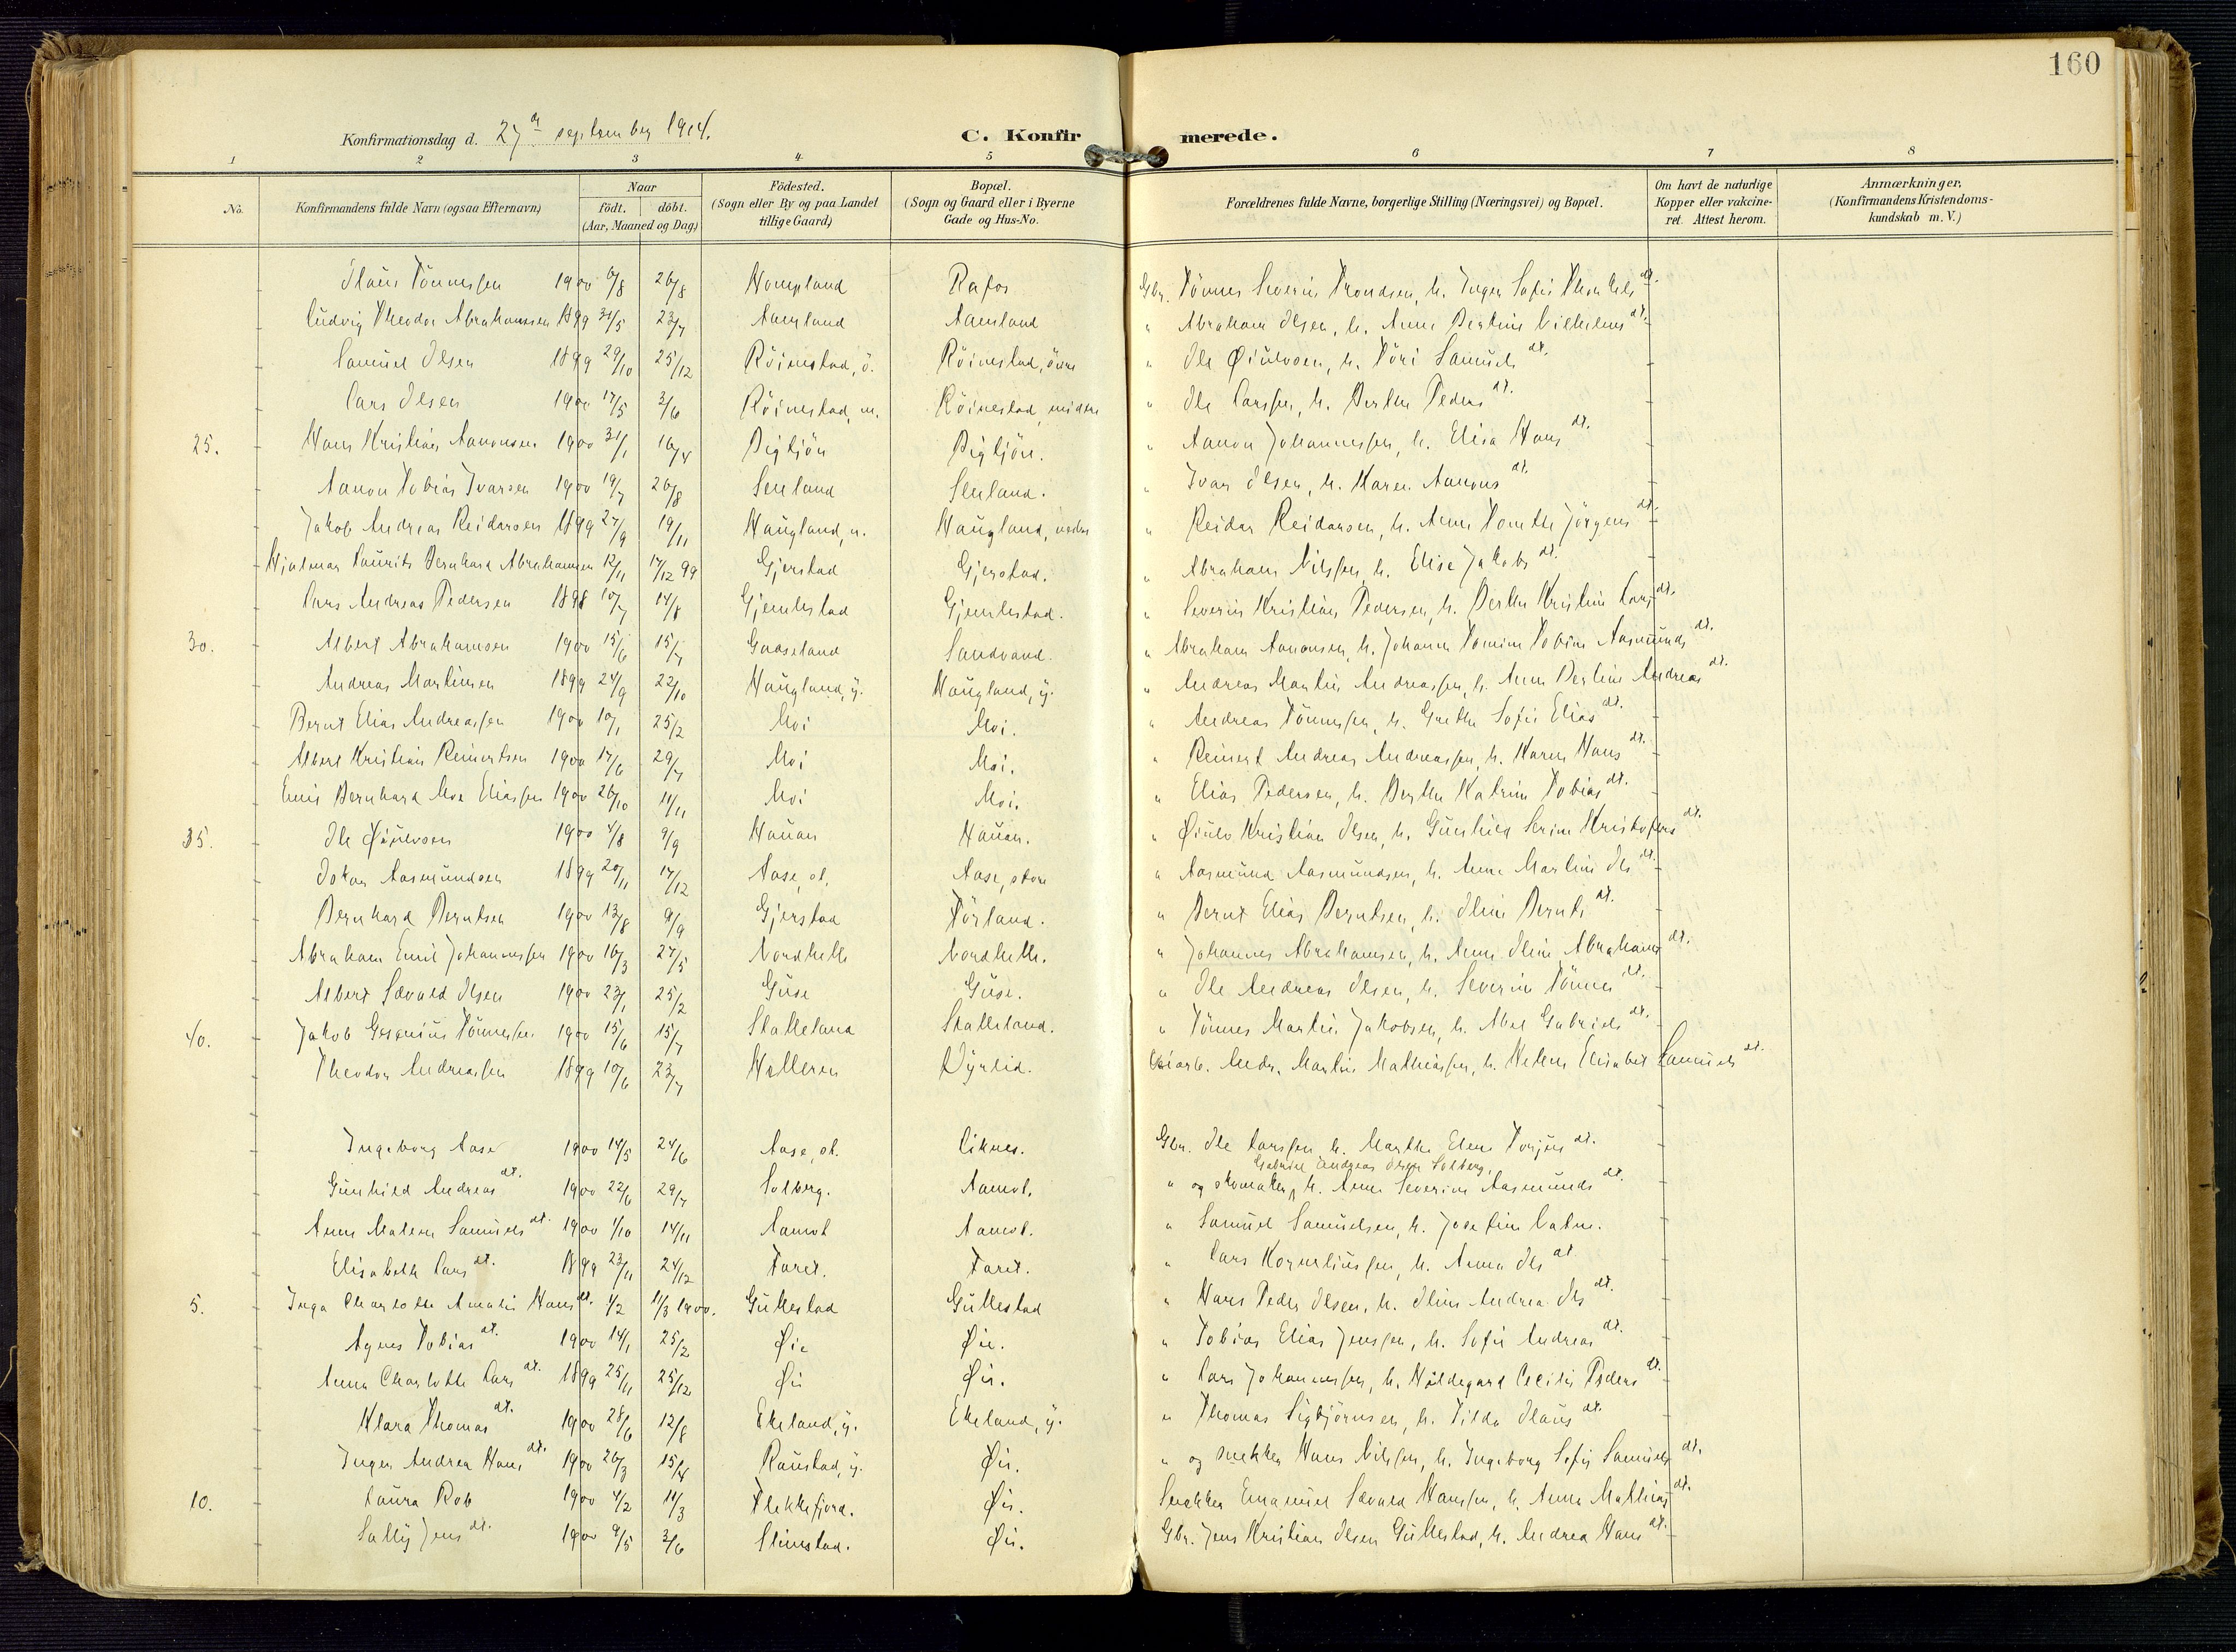 160
Konfirmationsdag d. 27de september 1914.
C. Konfirmerede.
1 2 3 4 5 6 7 8
No. Konfirmandens fulde Navn (ogsaa Efternavn) Naar födt. döbt. (Aar, Maaned og Dag) Födested. (Sogn eller By og paa Landet tillige Gaard) Bopæl. (Sogn og Gaard eller i Byerne Gade og Hus-No. Forældrenes fulde Navne, borgerlige Stilling (Næringsvei) og Bopæl. Om havt de naturlige Kopper eller vakcineret. Attest herom. Anmærkninger. (Konfirmandens Kristendomskundskab m. V.)
Olaus Tönnessen 1900 6/8 26/8 Hompland Rafos Gbr. Tönnes Severin Trondsen, h. Inger Sofie
Ludvig Theodor Abrahamsen 1899 31/5 23/7 Aamland Aamland " Abraham Olsen, h. Anne Bertine Vilhelms dt.
Samuel Olsen 1899 29/10 25/12 Röinestad, ö. Röinestad, övre " Ole Øiulvsen, h. Töri Samuels dt.
Lars Olsen 1900 17/5 3/6 Röinestad, m. Röinestad, midtre " Ole Larssen, h. Berthe Peders dt.
25. Hans Kristian Aanonsen 1900 31/1 16/4 Bigtjön Bigtjön. " Aanon Johannessen, h. Elisa Hans dt.
Aanon Tobias Ivarsen 1900 19/7 26/8 Seuland Seuland. " Ivar Olsen, h. Karen Aanons dt.
Jakob Andreas Reidarsen 1899 27/9 19/11 Haugland, n. Haugland, nedre " Reidar Reidarsen, h. Anne Tomethe Jörgens dt.
Hjalmar Laurits Bernhard Abrahamsen 12/11 17/12 99 Gjerstad Gjerstad. " Abraham Nilssen, h. Elise Jakobs dt.
Lars Andreas Pedersen 1898 10/7 14/8 Gjemlestad Gjemlestad. " Severin Kristian Pedersen, h. Berthe Kristine Lars dt.
30. Albert Abrahamsen 1900 15/6 15/7 Gaaseland Sandvand. " Abraham Aanonsen, h. Johanne Tomine Tobine Aasmunds dt.
Andreas Martinsen 1899 24/9 22/10 Haugland, y. Haugland, y. " Andreas Martin Andreassen, h. Anne Bertine Andreas dt.
Bernt Elias Andreassen 1900 10/1 25/2 Moi Moi. " Andreas Tönnessen, h. Grethe Sofie Elias dt.
Albert Kristian Reinertsen 1900 17/6 29/7 Moi Moi. " Reinert Andreas Andreassen, h. Karen Hans dt.
Emil Bernhard Moe Eliassen 1900 26/10 11/11 Moi Moi. " Elias Pedersen, h. Berthe Katrine Tobias dt.
35. Ole Øiulvsen 1900 4/8 9/9 Hauan Hauan. " Øiulv Kristian Olsen, h. Gunhild Serine Kristofers dt.
Johan Aasmundsen 1899 20/11 17/12 Aase, st. Aase, store " Aasmund Aasmundsen, h. Anne Martine Ols dt.
Bernhard Berntsen 1900 13/8 9/9 Gjerstad Törland. " Bernt Elias Berntsen, h. Oline Bernts dt.
Abraham Emil Johannessen 1900 16/3 27/5 Nordhelle Nordhelle. " Johannes Abrahamsen, h. Anne Oline Abrahams dt.
Albert Edvald Olsen 1900 23/1 25/2 Guse Guse. " Ole Andreas Olsen, h. Severine Tönnes dt.
40. Jakob Gesenius Tönnessen 1900 15/6 15/7 Stalleland Stalleland. " Tönnes Martin Jakobsen, h. Abel Gabriels dt.
Theodor Andreassen 1899 10/6 23/7 Helleren Dyrlid. Andr. Martin Mathiassen, h. Helene Elisabet Samuels dt.
Ingeborg Aase 1900 14/5 24/6 Aase, st. Liknes. Gbr. Ole Larssen h. Marthe Elene Torjus dt.
Gabriel Andreas Olsen Solberg,
Gunhild Andreas dt. 1900 22/6 29/7 Solberg. Aamot. " og skomaker, h. Anne Severine Aasmunds dt.
Anne Malene Samuels dt. 1900 1/10 14/11 Aamot Aamot. " Samuel Samuelsen, h. Josefine Vatne.
Elisabeth Lars dt. 1899 23/11 24/12 Faret. Faret. " Lars Korneliussen, h. Anna Ols dt.
5. Inga Charlotte Amalie Hans dt. 1/2 11/3 1900. Gullestad Gullestad " Hans Peder Olsen, h. Oline Andrea Ols dt.
Agnes Tobias dt. 1900 14/1 25/2 Øie Øie. " Tobias Elias Jenssen, h. Sofie Andreas dt.
Anna Charlotte Lars dt. 1899 25/11 25/12 Øie Øie. " Lars Johannessen, h. Hildegard Cecilie Peders dt.
Klara Thomas dt. 1900 28/6 12/8 Ekeland, y. Ekeland, y. " Thomas Sigbjörnsen, h. Tilda Olaus dt.
Inger Andrea Hans dt. 1900 26/3 15/4 Raustad, y. Øie. " og snekker Hans Nilssen, h. Ingeborg Sofie Samuels dt.
10. Laura Rob 1900 4/2 11/3 Flekkefjord. Øie. Snekker Emanuel Edvard Hanssen, h. Anna Mathias dt.
Sally Jens dt. 1900 9/5 3/6 Slimstad. Øie. Gbr. Jens Kristian Olsen Gullestad, h. Andrea Hans dt.